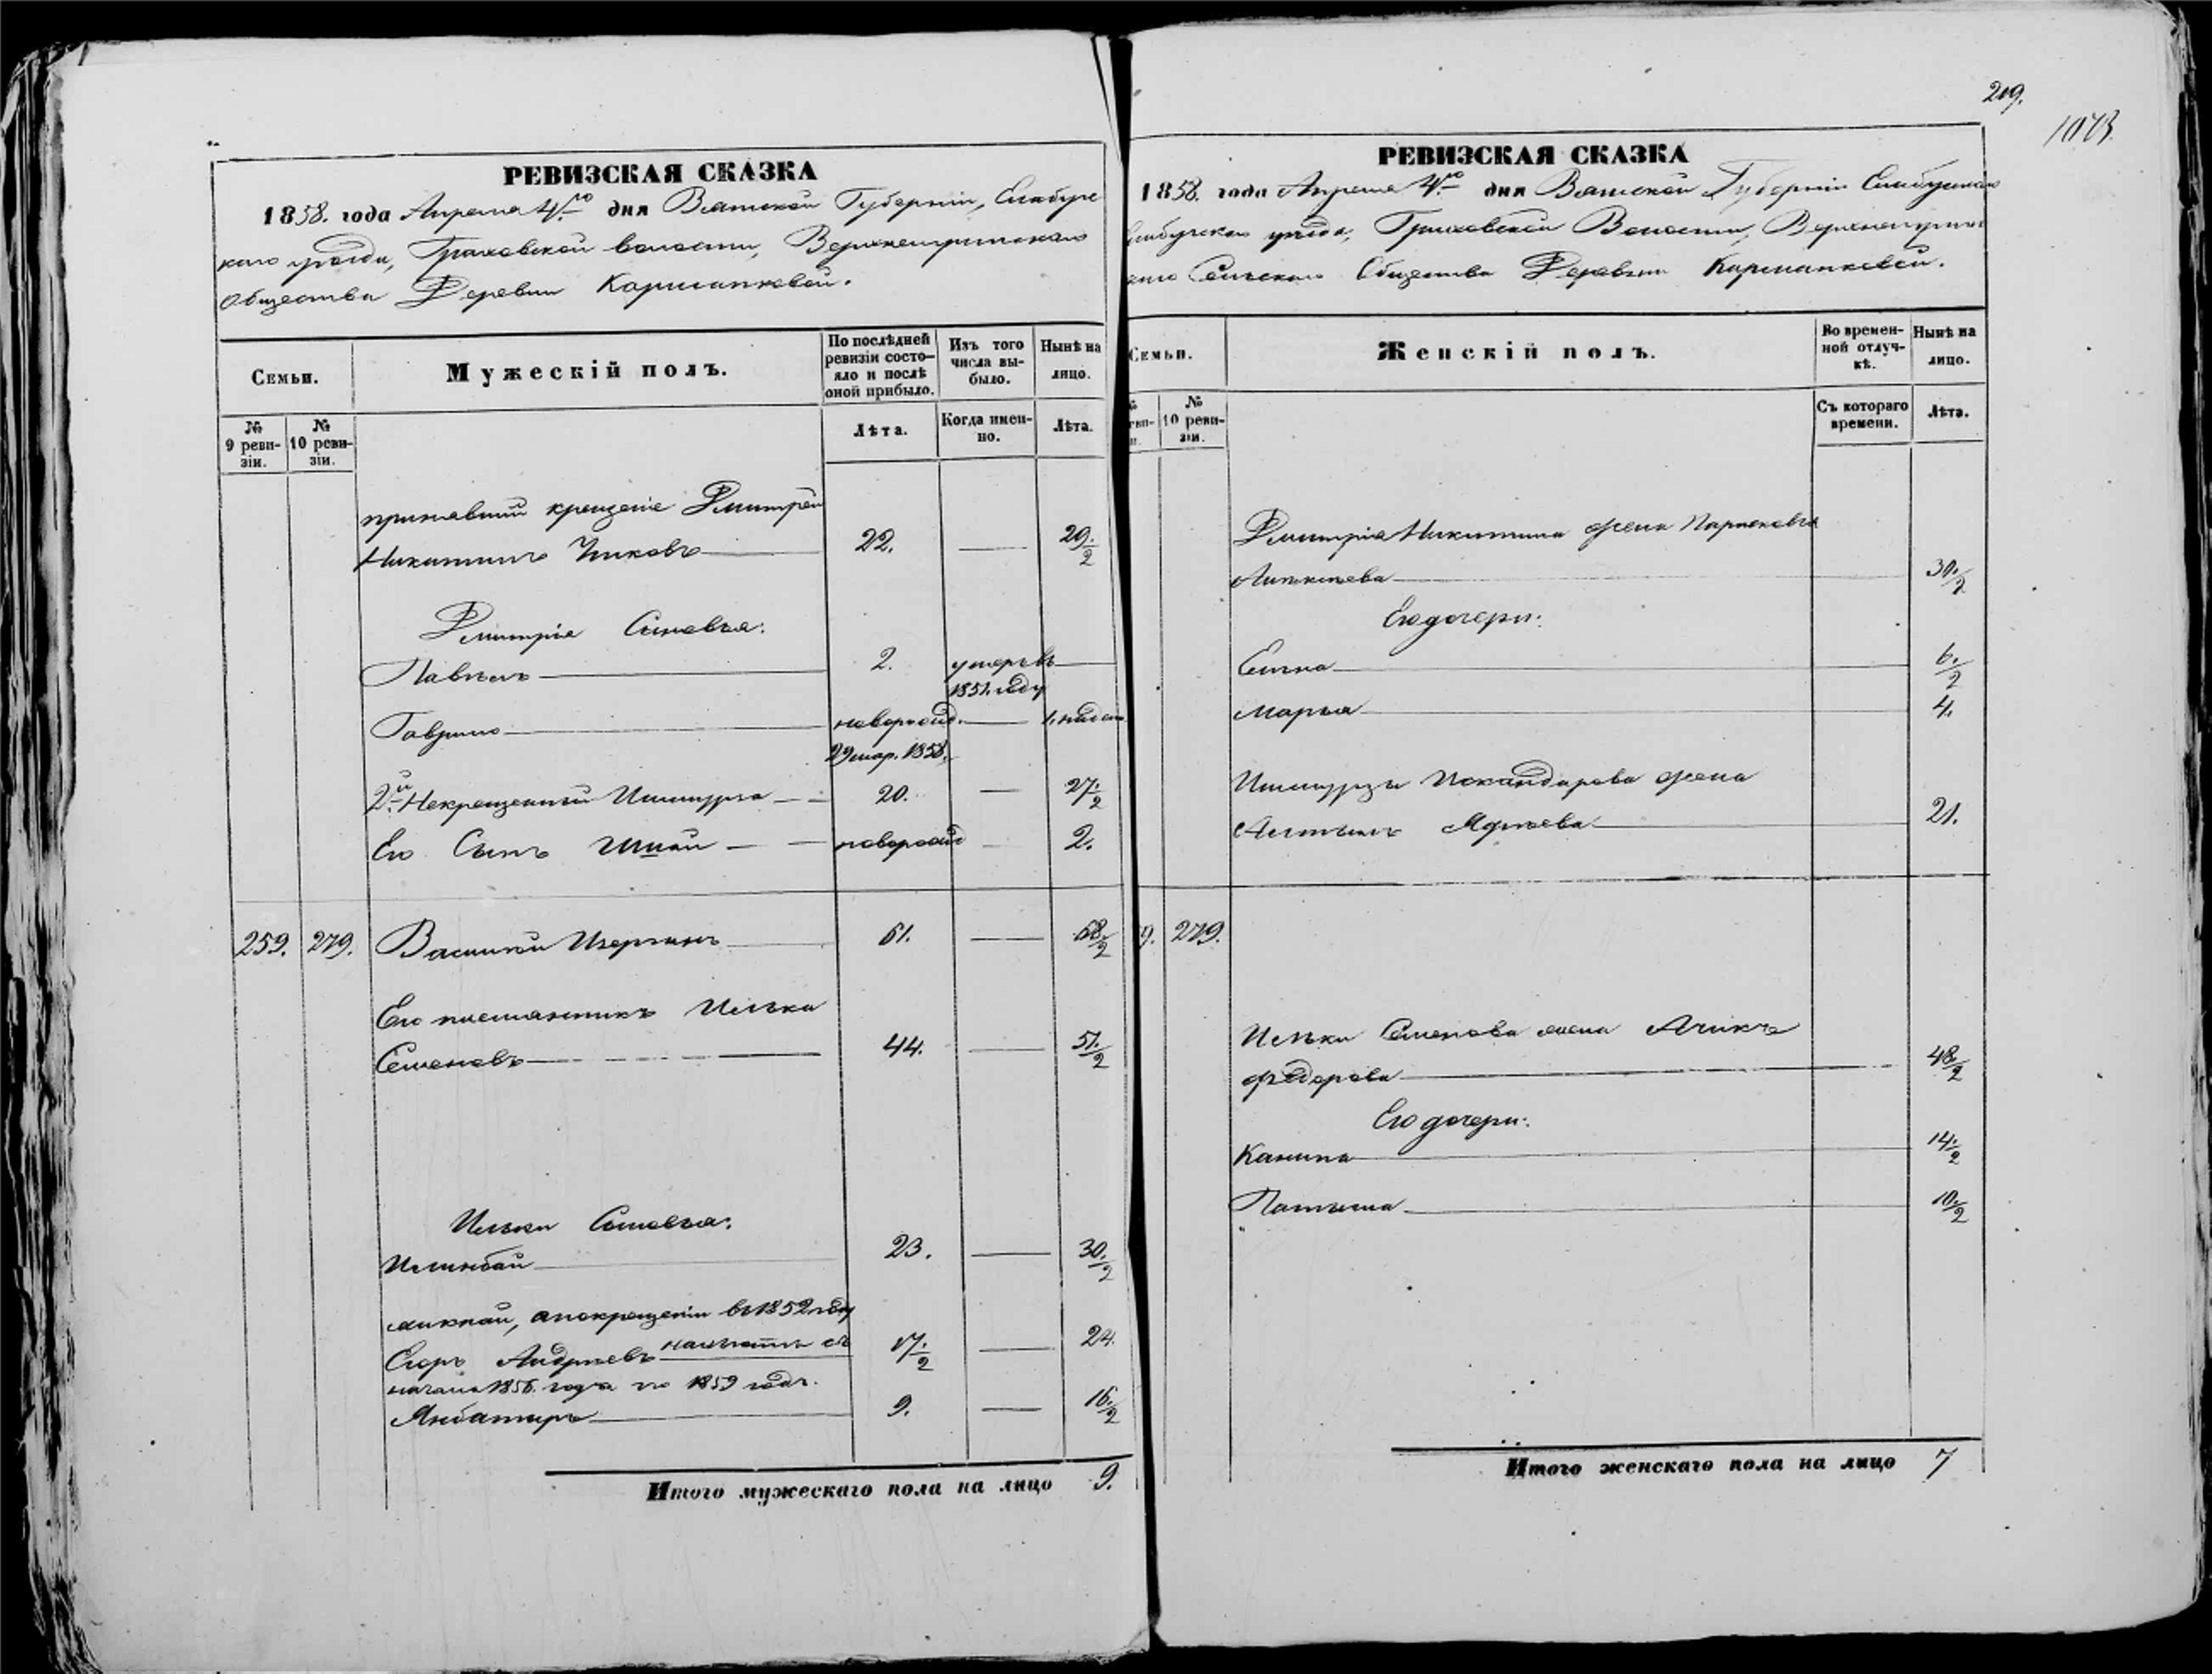 219.
1073.
РЕВИЗСКАЯ СКАЗКА
1858. года Апреля 4.го дня Вятской Губерніи, Елабужс
каго уѣзда, Граховской волости,
Общества Деревни Кармановой.
Семьи.
Мужескій полъ.
По послѣдней ревизіи состояло и послѣ оной прибыло.
Изъ того числа выбыло.
Нынѣ на лицо.
№ 9 ревизіи.
№ 10 ревизіи.
Лѣта.
Когда именно.
Лѣта.
принявшій крещеніе Дмитрей
Никитинъ 22. — 29½
Дмитрія Сыновья:
Павелъ — 2. умеръ въ
1851. году
Гаврило — новорожд. — 1. недел
29 мар. 1858.
2й Некрещенный Ишмурза — 20. — 27½
Его Сынъ — новорожд — 2.
259. 279. Василій — 61. — 68½
Его племянникъ Илька
Семеновъ — 44. — 51½
Ильки Сыновья:
23. — 30½
а по крещеніи въ 1852 году
Егоръ Андреевъ 17½ — 24.
начала 1856. года по 1859 годъ.
Янбатыръ — 9. — 16½
Итого мужескаго пола на лицо 9.
РЕВИЗСКАЯ СКАЗКА
1858. года Апреля 4.го дня Вятской Губерніи
уѣзда, Граховской Волости,
Сельскаго Общества Деревни
Семьи.
Женскій полъ.
Во временной отлучкѣ.
Нынѣ на лицо.
№ 10 ревизіи.
Съ котораго времени.
Лѣта.
Дмитрія Никитина жена
30½
Его дочери:
Елена — 6½
Марья — 4.
Ишмурзы Искандарова жена
21.
9. 279.
Ильки Семенова жена
Федорова — 48½
Его дочери:
Канипа — 14½
10½
Итого женскаго пола на лицо 7